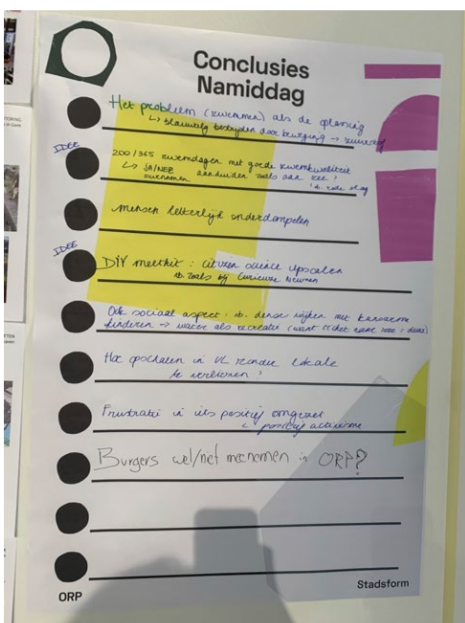 Conclusies
Namiddag
Het probleem (zwemmen) als de oplossing
↳ blauwalg bestrijden door beweging → zuurstof
IDEE
200/365 zwemdagen met goede zwemkwaliteit
↳ JA/NEE aanduiden zoals aan zee!
zwemmen vb. rode vlag
Mensen letterlijk onderdompelen
IDEE
DIY meetkit: citizen science upscalen
vb. zoals bij Curieuze Neuzen
Ook sociaal aspect: vb. dense wijken met kansarme
kinderen → water als recreatie (want ticket naar zee: duur)
Hoe opschalen in VL zonder lokale
te verliezen?
Frustratie in iets positief omgezet
↳ positief activisme
Burgers wel/niet meenemen in ORP?
ORP
Stadsform